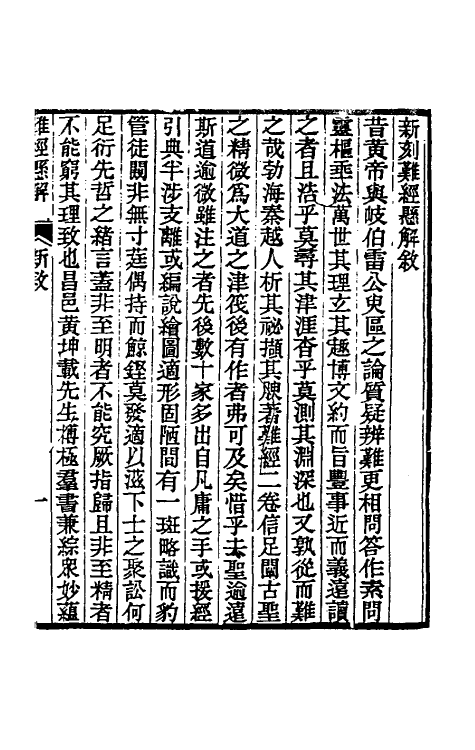 新刻難經懸解敘
昔黃帝與岐伯雷公臾區之論質疑辨難更相問答作素問
靈樞垂法萬世其理玄其趣博文約而旨豐事近而義遠讀
之者且浩乎莫尋其津涯杳乎莫測其淵深也又孰從而難
之哉勃海秦越人析其祕擷其腴著難經二卷信足闡古聖
之精微為大道之津筏後有作者弗可及矣惜乎去聖逾遠
斯道逾微雖注之者先後數十家多出自凡庸之手或援經
引典半涉支離或編說繪圖適形固陋間有一斑略識而豹
管徒闚非無寸莛偶持而鯨鏗莫發適以滋下士之聚訟何
足衍先哲之緒言蓋非至明者不能究厥指歸且非至精者
不能窮其理致也昌邑黃坤載先生博極羣書兼綜眾妙蘊
難經懸解 新敘 一